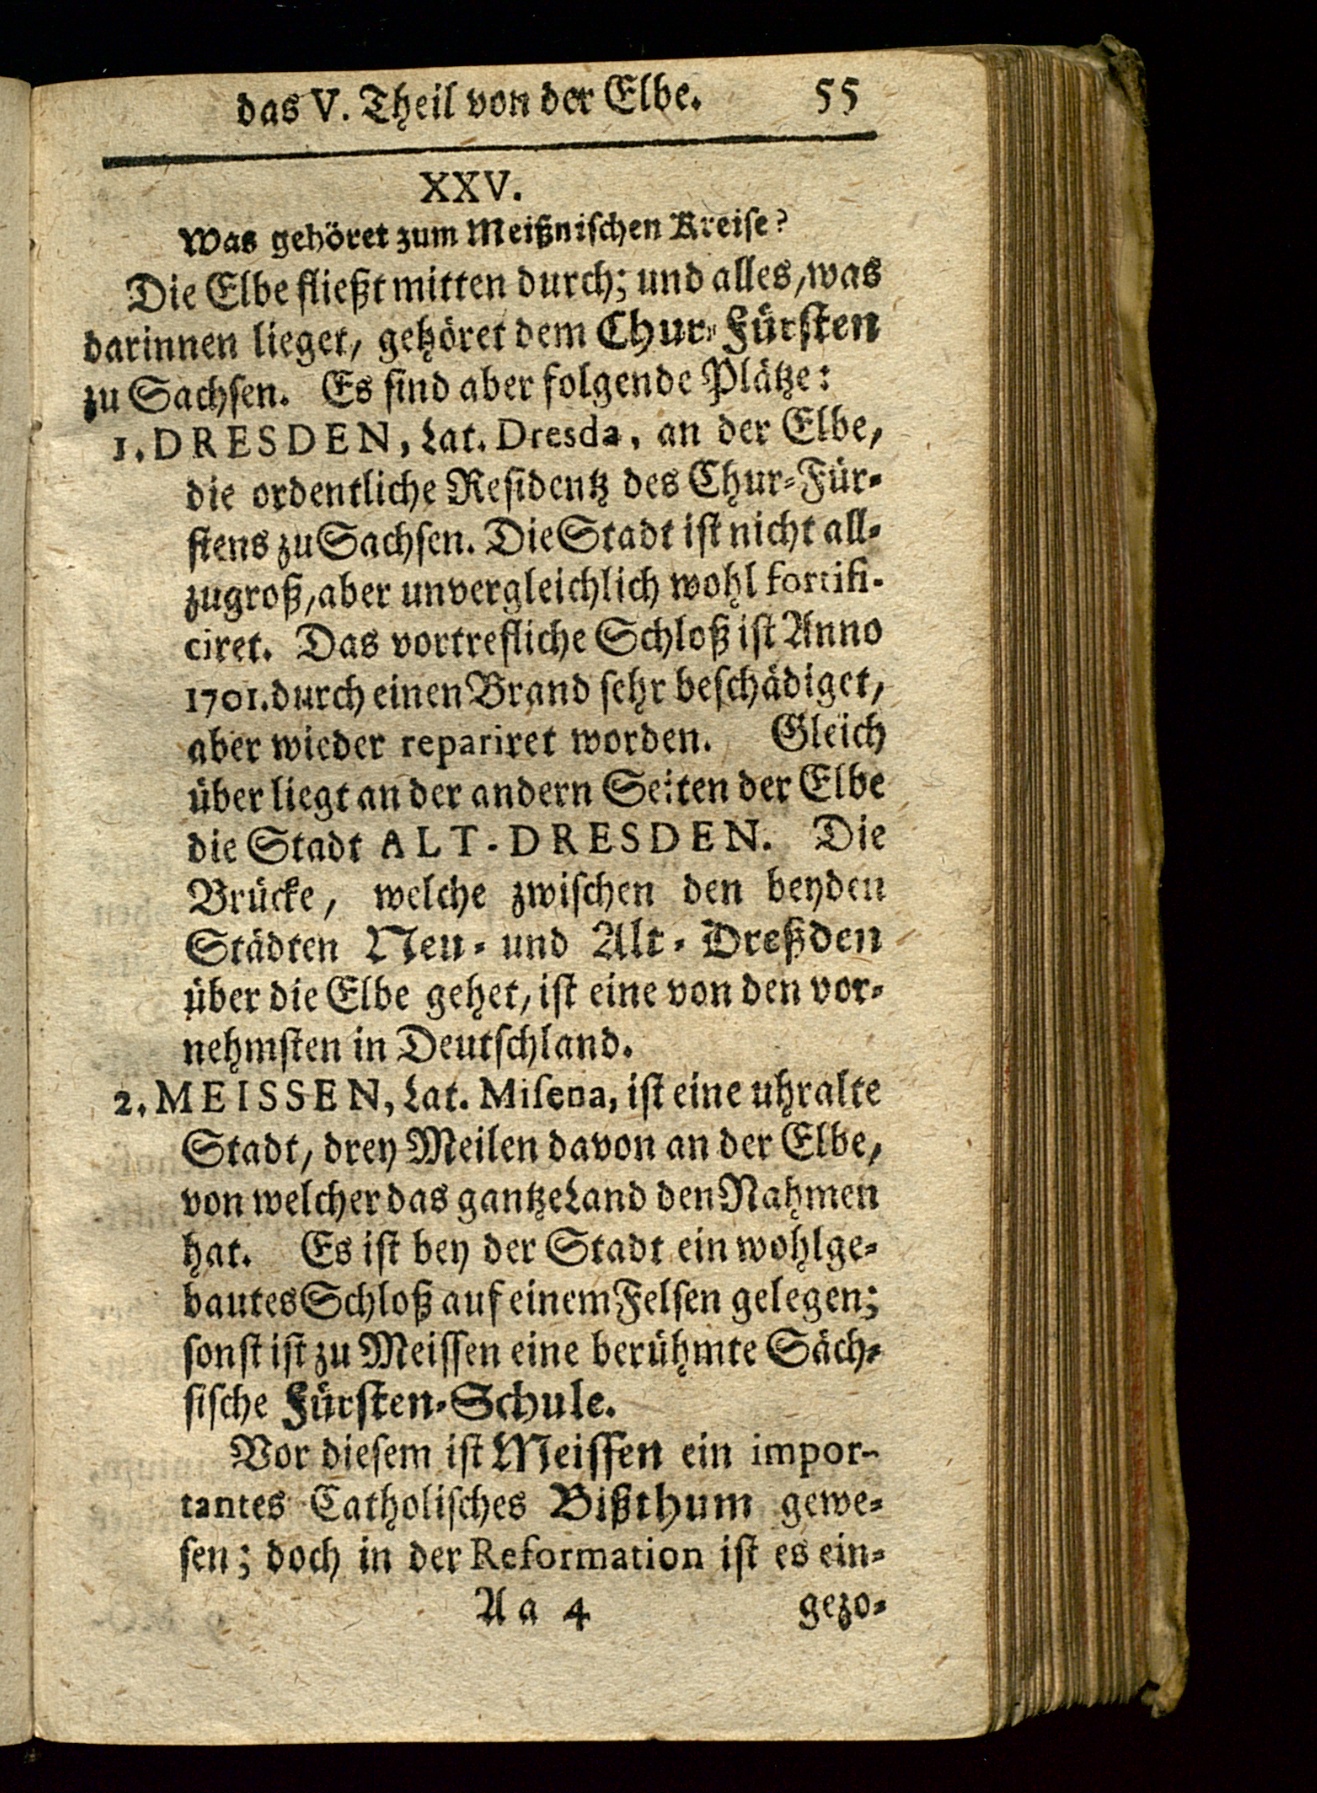 das V. Theil von der Elbe. 55
XXV.
Was gehöret zum Meißnischen Kreise?
Die Elbe fließt mitten durch; und alles, was
darinnen lieget, gehöret dem Chur-Fürsten
zu Sachsen. Es sind aber folgende Plätze:
1. DRESDEN, Lat. Dresda, an der Elbe,
die ordentliche Residentz des Chur-Für-
stens zu Sachsen. Die Stadt ist nicht all-
zugroß, aber unvergleichlich wohl fortifi-
ciret. Das vortrefliche Schloß ist Anno
1701. durch einen Brand sehr beschädiget,
aber wieder repariret worden. Gleich
über liegt an der andern Seiten der Elbe
die Stadt ALT-DRESDEN. Die
Brücke, welche zwischen den beyden
Städten Neu- und Alt-Dreßden
über die Elbe gehet, ist eine von den vor-
nehmsten in Deutschland.
2. MEISSEN, Lat. Misena, ist eine uhralte
Stadt, drey Meilen davon an der Elbe,
von welcher das gantze Land den Nahmen
hat. Es ist bey der Stadt ein wohlge-
bautes Schloß auf einem Felsen gelegen;
sonst ist zu Meissen eine berühmte Säch-
sische Fürsten-Schule.
Vor diesem ist Meissen ein impor-
tantes Catholisches Bißthum gewe-
sen; doch in der Reformation ist es ein-
Aa 4 gezo-